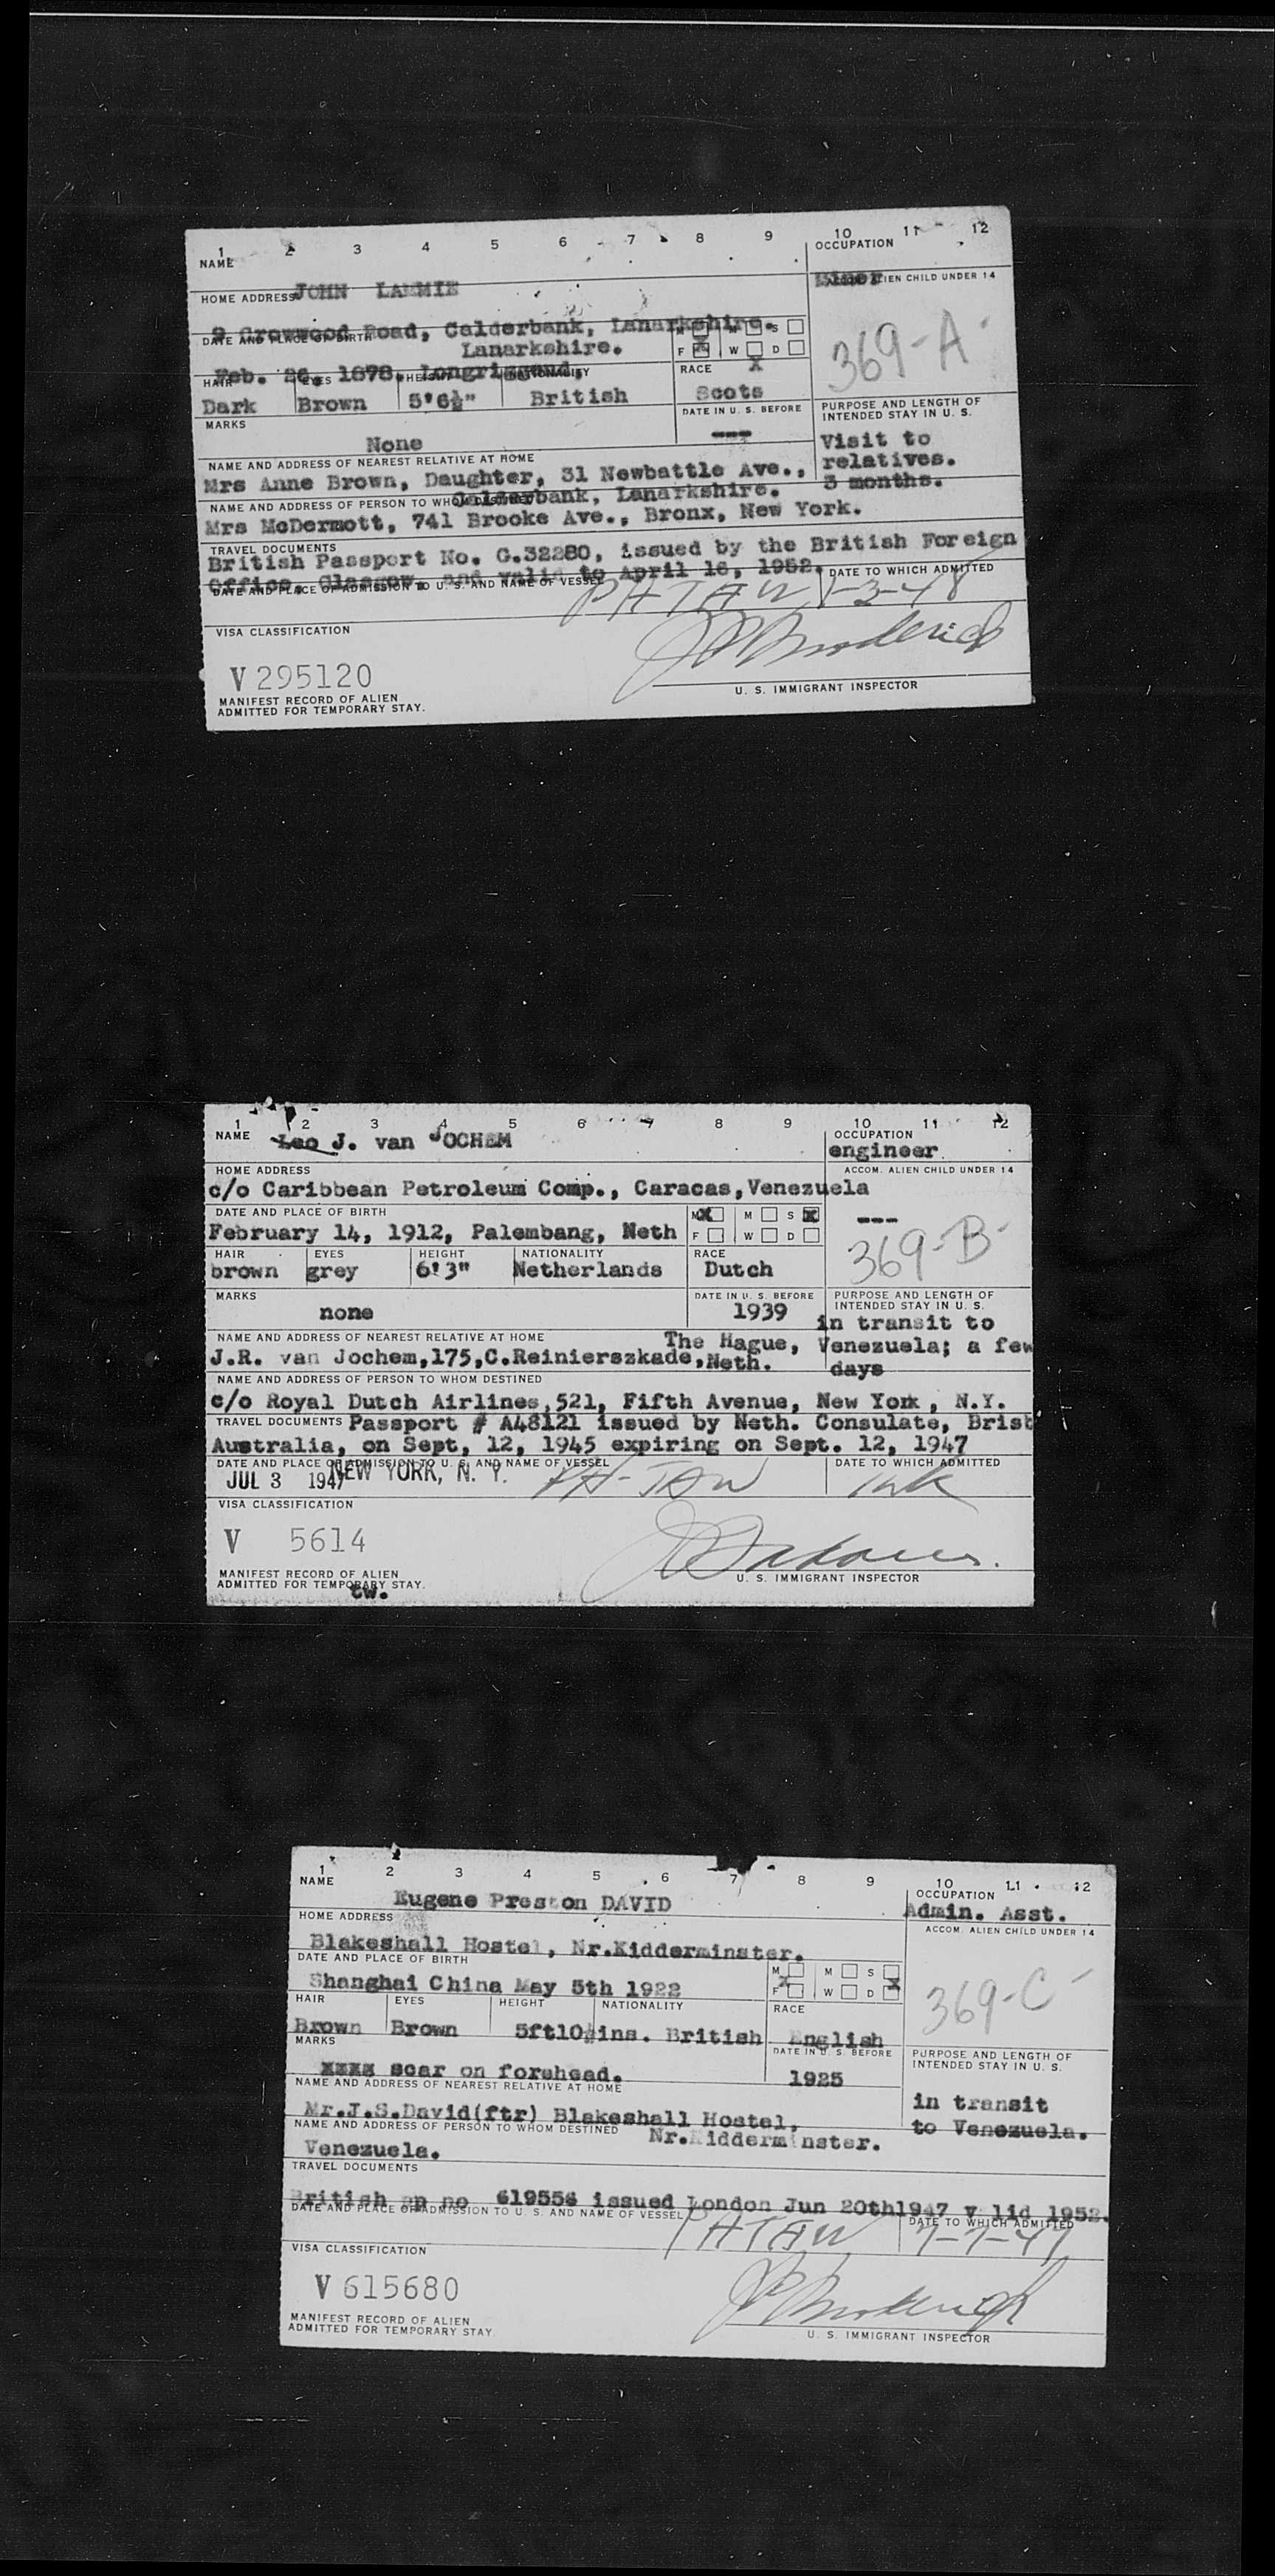 1 2 3 4 5 6 7 8 9 10 11 12
NAME OCCUPATION
JOHN LAMMIE Miner
HOME ADDRESS ACCOM. ALIEN CHILD UNDER 14
9 Crowwood Road, Calderbank, Lanarkshire.
DATE AND PLACE OF BIRTH M M S
Lanarkshire. F X W D
Feb. 26, 1878, Longriggend, X
HAIR EYES HEIGHT NATIONALITY RACE
369-A
Dark Brown 5'6½" British Scots
MARKS DATE IN U. S. BEFORE PURPOSE AND LENGTH OF
INTENDED STAY IN U. S.
None --- Visit to
NAME AND ADDRESS OF NEAREST RELATIVE AT HOME relatives.
Mrs Anne Brown, Daughter, 31 Newbattle Ave., 3 months.
Calderbank, Lanarkshire.
NAME AND ADDRESS OF PERSON TO WHOM DESTINED
Mrs McDermott, 741 Brooke Ave., Bronx, New York.
TRAVEL DOCUMENTS
British Passport No. G.32280, issued by the British Foreign
Office, Glasgow, and valid to April 16, 1952.
DATE AND PLACE OF ADMISSION TO U. S. AND NAME OF VESSEL DATE TO WHICH ADMITTED
PATAW 1-3-48
VISA CLASSIFICATION
V 295120
U. S. IMMIGRANT INSPECTOR
MANIFEST RECORD OF ALIEN
ADMITTED FOR TEMPORARY STAY.
1 2 3 4 5 6 7 8 9 10 11 12
NAME Leo J. van JOCHEM OCCUPATION
engineer
HOME ADDRESS ACCOM. ALIEN CHILD UNDER 14
c/o Caribbean Petroleum Comp., Caracas,Venezuela
DATE AND PLACE OF BIRTH M X M S X ---
February 14, 1912, Palembang, Neth F W D
369-B
HAIR EYES HEIGHT NATIONALITY RACE
brown grey 6'3" Netherlands Dutch
MARKS DATE IN U. S. BEFORE PURPOSE AND LENGTH OF
INTENDED STAY IN U. S.
none 1939 in transit to
NAME AND ADDRESS OF NEAREST RELATIVE AT HOME The Hague, Venezuela; a few
J.R. van Jochem,175,C.Reinierszkade,Neth. days
NAME AND ADDRESS OF PERSON TO WHOM DESTINED
c/o Royal Dutch Airlines,521, Fifth Avenue, New York, N.Y.
TRAVEL DOCUMENTS Passport # A48121 issued by Neth. Consulate, Brisb
Australia, on Sept, 12, 1945 expiring on Sept. 12, 1947
DATE AND PLACE OF ADMISSION TO U. S. AND NAME OF VESSEL DATE TO WHICH ADMITTED
JUL 3 1947 NEW YORK, N. Y. PA-TAW
VISA CLASSIFICATION
V 5614
U. S. IMMIGRANT INSPECTOR
MANIFEST RECORD OF ALIEN
ADMITTED FOR TEMPORARY STAY.
tw.
1 2 3 4 5 6 7 8 9 10 11 12
NAME OCCUPATION
Eugene Preston DAVID Admin. Asst.
HOME ADDRESS ACCOM. ALIEN CHILD UNDER 14
Blakeshall Hostel, Nr.Kidderminster.
DATE AND PLACE OF BIRTH M M S
Shanghai China May 5th 1922 X F W D X
369-C
HAIR EYES HEIGHT NATIONALITY RACE
Brown Brown 5ft10½ins. British English
MARKS DATE IN U. S. BEFORE PURPOSE AND LENGTH OF
INTENDED STAY IN U. S.
xxxx scar on forehead. 1925
NAME AND ADDRESS OF NEAREST RELATIVE AT HOME in transit
Mr.J.S.David(ftr) Blakeshall Hostel, to Venezuela.
NAME AND ADDRESS OF PERSON TO WHOM DESTINED Nr.Kidderminster.
Venezuela.
TRAVEL DOCUMENTS
British pp no 619556 issued London Jun 20th1947 valid 1952.
DATE AND PLACE OF ADMISSION TO U. S. AND NAME OF VESSEL DATE TO WHICH ADMITTED
PATAW 7-7-47
VISA CLASSIFICATION
V 615680
U. S. IMMIGRANT INSPECTOR
MANIFEST RECORD OF ALIEN
ADMITTED FOR TEMPORARY STAY.